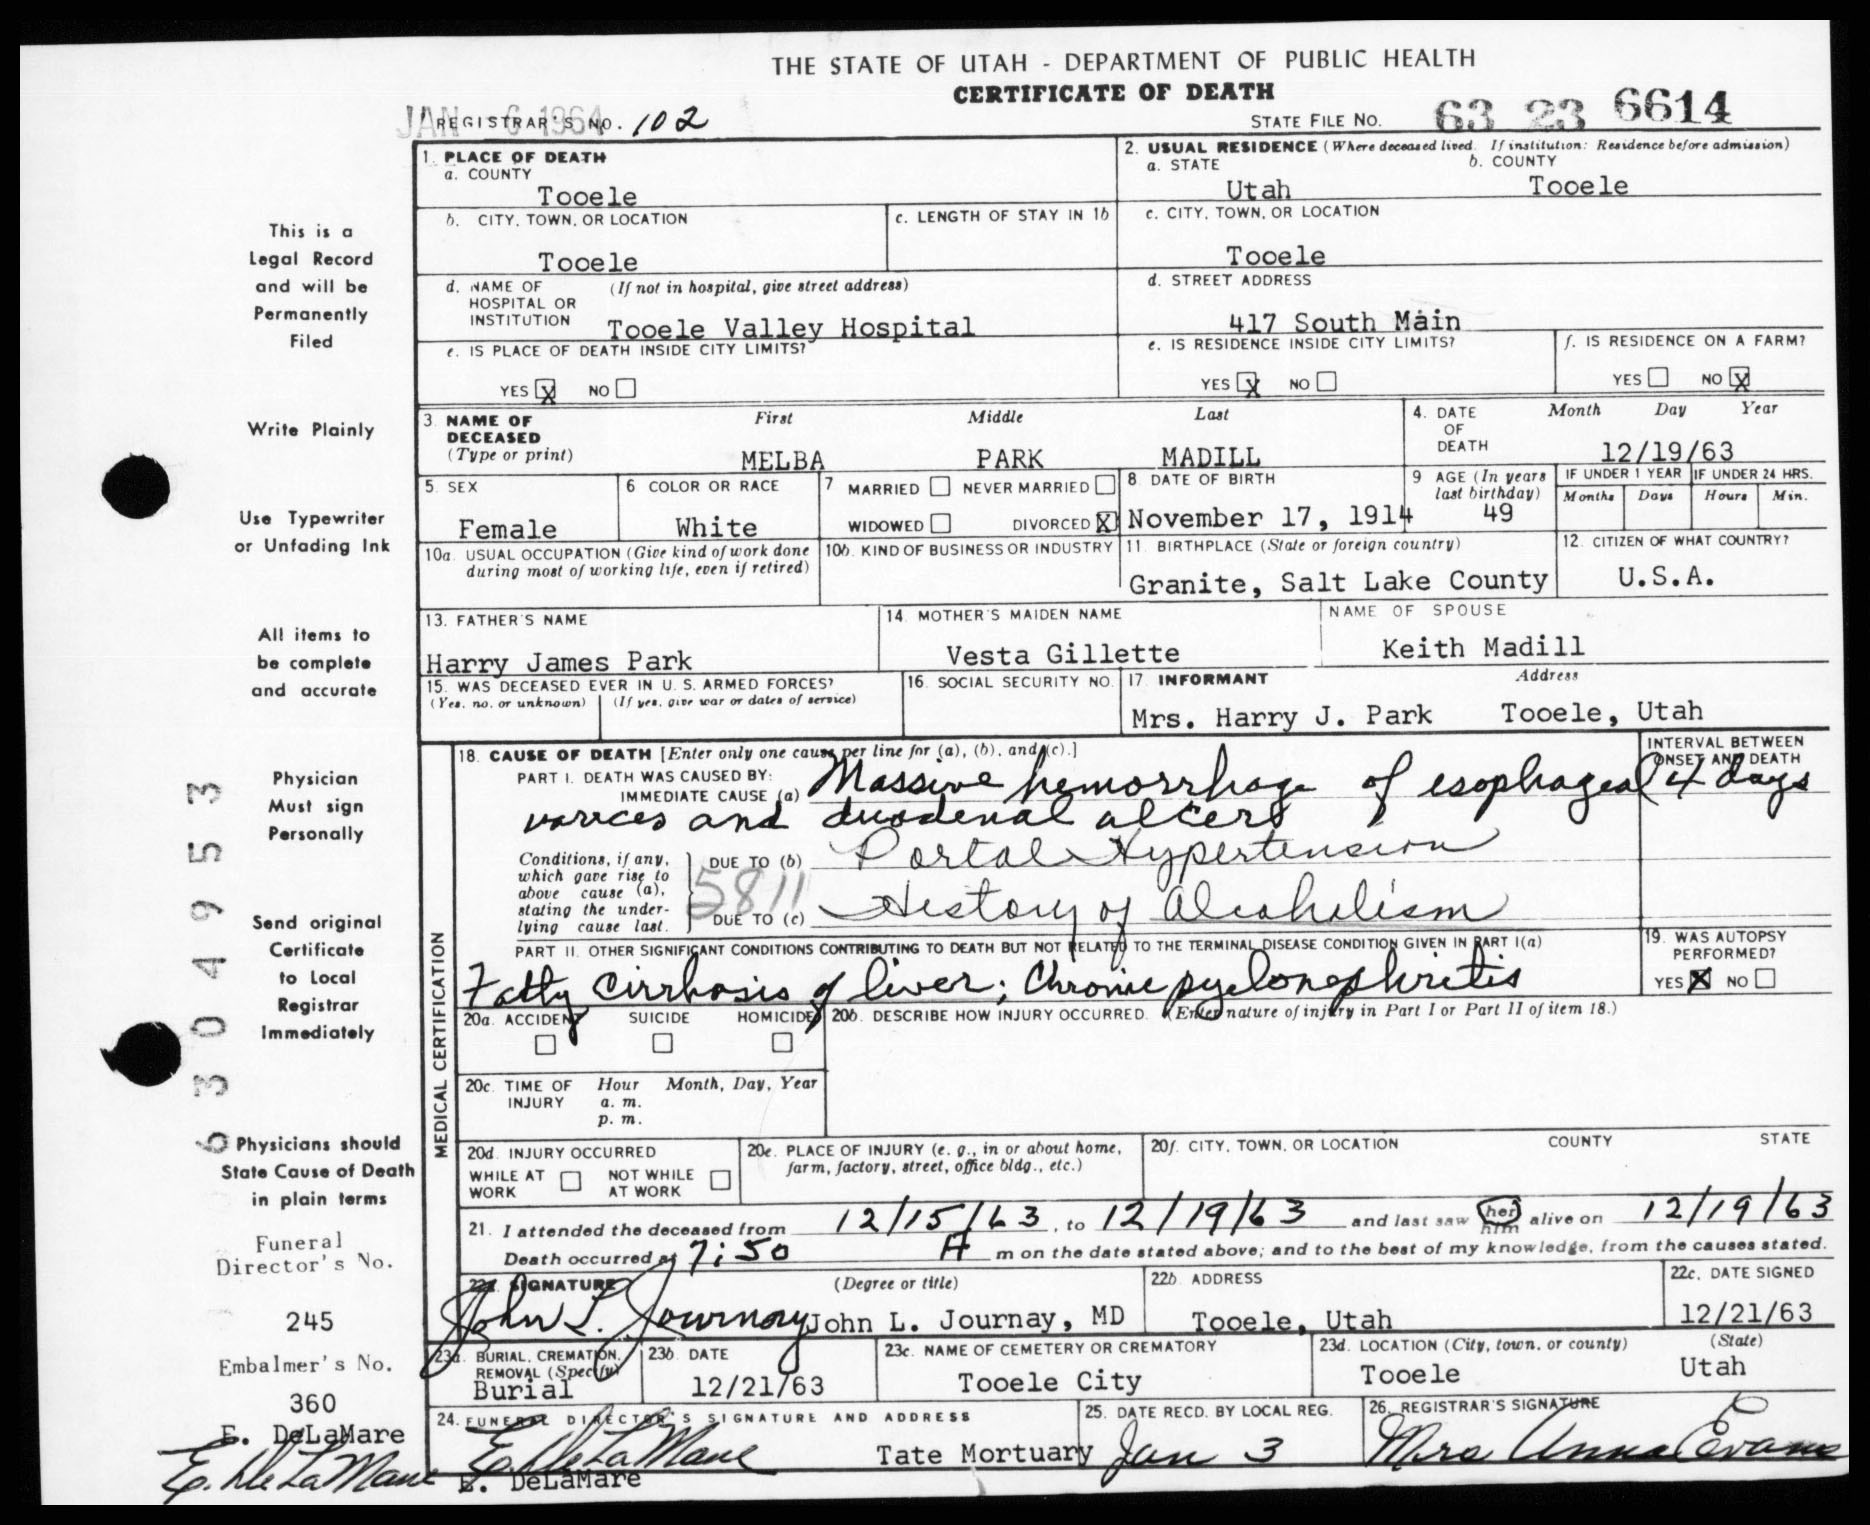 THE STATE OF UTAH - DEPARTMENT OF PUBLIC HEALTH
CERTIFICATE OF DEATH
JAN 6 1964
REGISTRAR'S NO. 102
STATE FILE NO. 63 23 6614
1. PLACE OF DEATH
a. COUNTY
Tooele
2. USUAL RESIDENCE (Where deceased lived. If institution: Residence before admission)
a. STATE b. COUNTY
Utah Tooele
b. CITY, TOWN, OR LOCATION
Tooele
c. LENGTH OF STAY IN 1b
c. CITY, TOWN, OR LOCATION
Tooele
d. NAME OF HOSPITAL OR INSTITUTION (If not in hospital, give street address)
Tooele Valley Hospital
d. STREET ADDRESS
417 South Main
e. IS PLACE OF DEATH INSIDE CITY LIMITS?
YES X NO
e. IS RESIDENCE INSIDE CITY LIMITS?
YES X NO
f. IS RESIDENCE ON A FARM?
YES NO X
3. NAME OF DECEASED (Type or print)
First Middle Last
MELBA PARK MADILL
4. DATE OF DEATH
Month Day Year
12/19/63
5. SEX
Female
6 COLOR OR RACE
White
7 MARRIED NEVER MARRIED
WIDOWED DIVORCED X
8 DATE OF BIRTH
November 17, 1914
9 AGE (In years last birthday)
49
IF UNDER 1 YEAR IF UNDER 24 HRS.
Months Days Hours Min.
10a. USUAL OCCUPATION (Give kind of work done during most of working life, even if retired)
10b. KIND OF BUSINESS OR INDUSTRY
11. BIRTHPLACE (State or foreign country)
Granite, Salt Lake County
12. CITIZEN OF WHAT COUNTRY?
U.S.A.
13. FATHER'S NAME
Harry James Park
14. MOTHER'S MAIDEN NAME
Vesta Gillette
NAME OF SPOUSE
Keith Madill
15. WAS DECEASED EVER IN U. S. ARMED FORCES?
(Yes, no, or unknown) (If yes, give war or dates of service)
16. SOCIAL SECURITY NO.
17. INFORMANT Address
Mrs. Harry J. Park Tooele, Utah
MEDICAL CERTIFICATION
18. CAUSE OF DEATH [Enter only one cause per line for (a), (b), and (c).]
INTERVAL BETWEEN ONSET AND DEATH
PART I. DEATH WAS CAUSED BY:
IMMEDIATE CAUSE (a) Massive hemorrhage of esophageal 4 days
varices and duodenal ulcers
Conditions, if any, which gave rise to above cause (a), stating the underlying cause last.
DUE TO (b) Portal Hypertension
5811
DUE TO (c) History of Alcoholism
PART II. OTHER SIGNIFICANT CONDITIONS CONTRIBUTING TO DEATH BUT NOT RELATED TO THE TERMINAL DISEASE CONDITION GIVEN IN PART I(a)
Fatty cirrhosis of liver; Chronic pyelonephritis
19. WAS AUTOPSY PERFORMED?
YES X NO
20a. ACCIDENT SUICIDE HOMICIDE
20b. DESCRIBE HOW INJURY OCCURRED. (Enter nature of injury in Part I or Part II of item 18.)
20c. TIME OF INJURY Hour Month, Day, Year
a. m.
p. m.
20d. INJURY OCCURRED
WHILE AT WORK NOT WHILE AT WORK
20e. PLACE OF INJURY (e. g., in or about home, farm, factory, street, office bldg., etc.)
20f. CITY, TOWN, OR LOCATION COUNTY STATE
21. I attended the deceased from 12/15/63, to 12/19/63 and last saw her him alive on 12/19/63
Death occurred at 7:50 A m on the date stated above; and to the best of my knowledge, from the causes stated.
22a. SIGNATURE (Degree or title)
John L. Journay John L. Journay, MD
22b. ADDRESS
Tooele, Utah
22c. DATE SIGNED
12/21/63
23a. BURIAL, CREMATION, REMOVAL (Specify)
Burial
23b. DATE
12/21/63
23c. NAME OF CEMETERY OR CREMATORY
Tooele City
23d. LOCATION (City, town, or county) (State)
Tooele Utah
24. FUNERAL DIRECTOR'S SIGNATURE AND ADDRESS
E. DeLaMare Tate Mortuary
E. DeLaMare
25. DATE RECD. BY LOCAL REG.
Jan 3
26. REGISTRAR'S SIGNATURE
Mrs Anna Evans
This is a
Legal Record
and will be
Permanently
Filed
Write Plainly
Use Typewriter
or Unfading Ink
All items to
be complete
and accurate
Physician
Must sign
Personally
Send original
Certificate
to Local
Registrar
Immediately
Physicians should
State Cause of Death
in plain terms
6304953
Funeral
Director's No.
245
Embalmer's No.
360
E. DeLaMare
E. DeLaMare